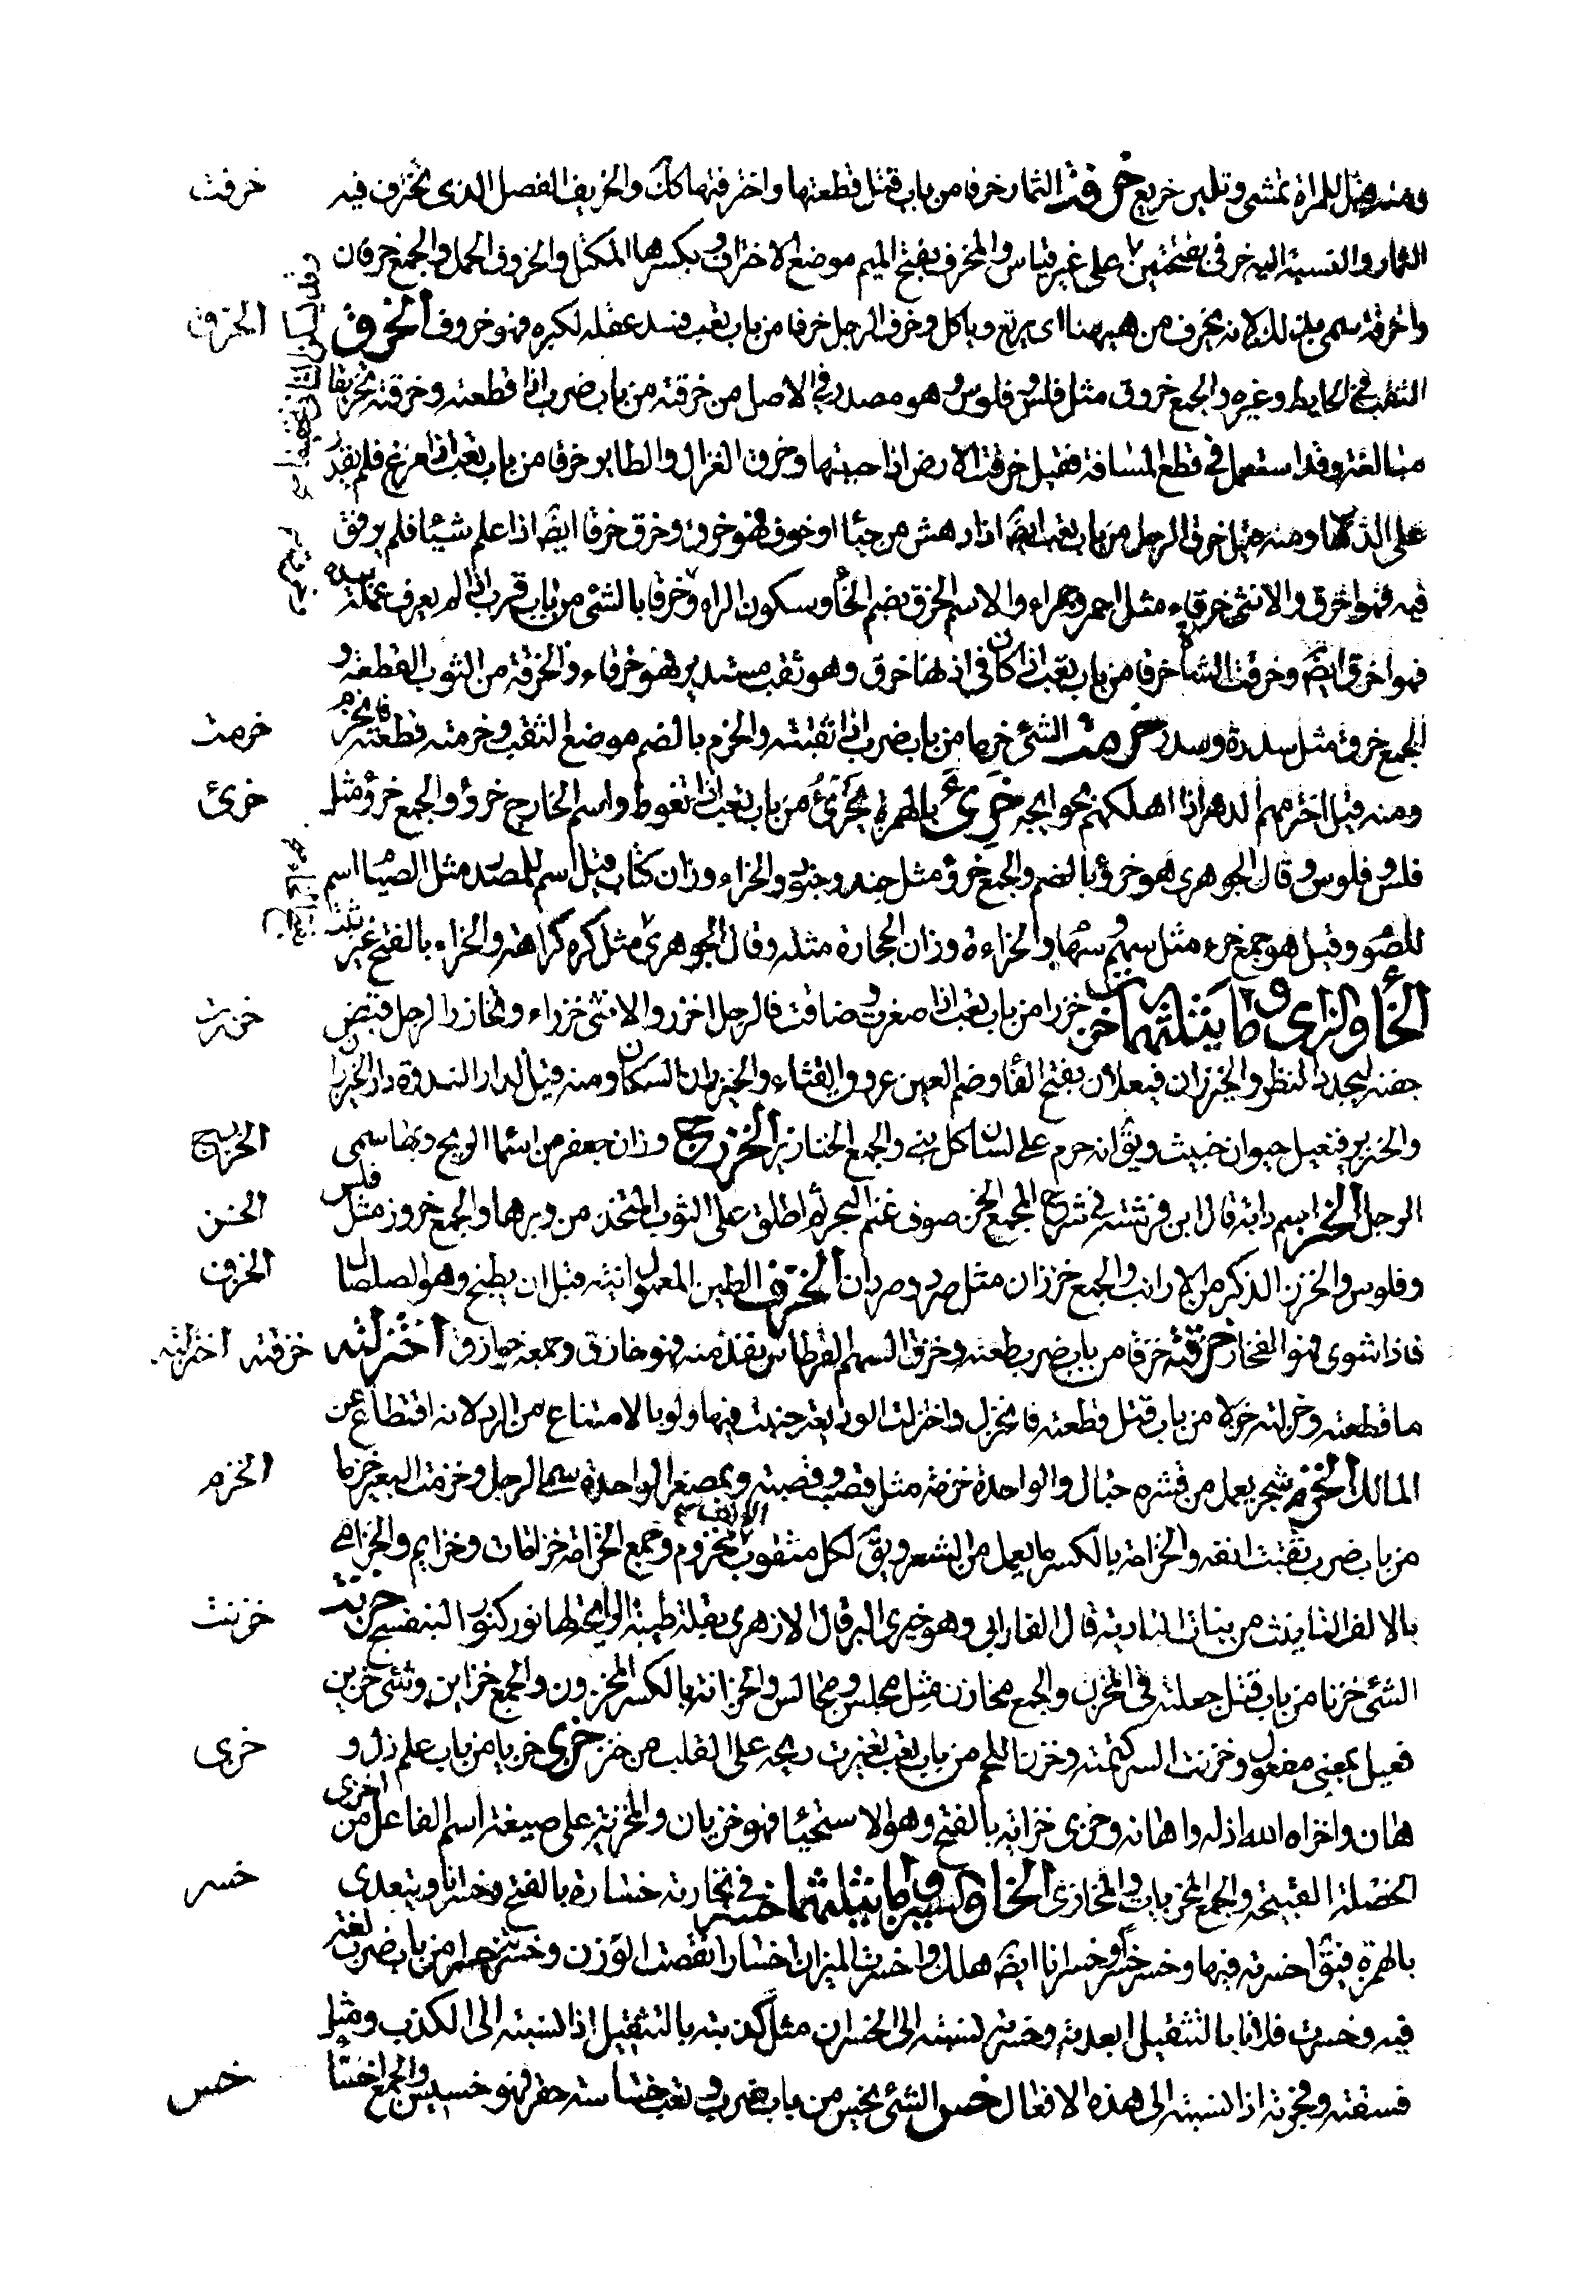 ومنه قيل للمراة تمشى وتلين خريع خرفت الثمار خرفا من باب قتل قطعتها واخترفتها كك والخريف الفصل الذى تخترف فيه خرفت
الثمار والنسبة اليه خرفى بفتحتين على غير قياس والمخرف بفتح الميم موضع الاختراف وبكسرها المكتل والخروف الحمل والجمع خرفان
واخرفة سمى بذلك لانه يخرف من ههنا اى يرتع وياكل وخرف الرجل خرفا من باب تعب فسد عقله لكبره فهو خرف الخرق الخرق
الثقب فى الحايط وغيره والجمع خروق مثل فلس وفلوس وهو مصدر فى الاصل من خرقته من باب ضرب اذا قطعته وخرقته تخريقا
مبالغة وقد استعمل فى قطع المسافة فقيل خرقت الارض اذا جبتها وخرق الغزال والطاير خرقا من باب تعب اذا فزع فلم يقدر
على الذهاب ومنه قيل خرق الرجل من باب تعب ايضا اذا دهش من حيا او خوف فهو خرق وخرق خرقا ايضا اذا عمل شيئا فلم يرفق
فيه فهو اخرق والانثى خرقاء مثل احمر وحمراء والاسم الخرق بضم الخاء وسكون الراء وخرق بالشئ من باب قرب اذا لم يعرف عمله بيده
فهو اخرق ايضا وخرقت الشاة خرقا من باب تعب اذا كان فى اذنها خرق وهو ثقب مستدير فهى خرقاء والخرقة من الثوب القطعة و
الجمع خرق مثل سدرة وسدر خرمت الشئ خرما من باب ضرب اذا ثقبته والخرم بالضم موضع الثقب وخرمته قطعته فانخرم خرمت
ومنه قيل اخترمهم الدهر اذا اهلكهم بحوايجه خرئ بالهمزة يخرئ من باب تعب اذا تغوط واسم الخارج خرؤ والجمع خرؤ مثل خرئ
فلس وفلوس وقال الجوهرى هو خرؤ بالضم والجمع خرؤ مثل جند وجنود والخراء وزان كتاب قيل اسم للمصدر مثل الصيام اسم
للصوم وقيل هو جمع خرء مثل سهم وسهام والخراءة وزان الحجارة مثله وقال الجوهرى مثل كره كراهة والخراء بالفتح غير ثبت
الخاء والزاى وما يثلثهما خزرت العين خزرا من باب تعب اذا صغرت وضاقت فالرجل اخزر والانثى خزراء وتخازر الرجل قبض خزرت
جفنه ليحدد النظر والخيزران فيعلان بفتح الفاء وضم العين عروق القثاء والخيزران السكان ومنه قيل لدار الندوة دار الخيزران
والخنزير فنعيل حيوان خبيث ويق انه حرم على لسان كل نبى والجمع الخنازير الخزرج وزان جعفر من اسماء الريح وبها سمى الخزرج
الرجل الخز اسم دابة قال ابن فرشته فى شرح المجمع الخز صوف غنم البحر ثم اطلق على الثوب المتخذ من وبرها والجمع خزوز مثل فلس الخز
وفلوس والخزز الذكر من الارانب والجمع خزان مثل صرد وصردان الخزف الطين المعمول انية قبل ان يطبخ وهو الصلصال الخزف
فاذا شوى فهو الفخار خزقته خزقا من باب ضرب طعنته وخزق السهم القرطاس نفذ منه فهو خازق وجمعه خوازق اختزلته خزقته اختزلته
ما قطعته وخزلته خزلا من باب قتل قطعته فانخزل واختزلت الوديعة خنت فيها ولو بالامتناع من الرد لانه اقتطاع عن
المالك الخزم شجر يعمل من قشره حبال والواحدة خزمة مثل قصب وقصبة وبمصغر الواحدة سمى الرجل وخزمت البعير خزما الخزم
من باب ضرب ثقبت انفه والخزامة بالكسر ما يعمل من الشعر ويق لكل مثقوب الانف مخزوم وجمع الخزامة خزامات وخزايم والخزامى
بالالف التانيث من نبات البادية قال الفارابى وهو خيرى البر قال الازهرى بقلة طيبة الرايحة لها نور كنور البنفسج خزنت خزنت
الشئ خزنا من باب قتل جعلته فى المخزن والجمع مخازن مثل مجلس ومجالس والخزانة بالكسر المخزون والجمع خزاين وشئ خزين
فعيل بمعنى مفعول وخزنت السر كتمته وخزن اللحم من باب تعب تغيرت ريحه على القلب من خنز خزى خزيا من باب علم ذل و خزى
هان واخزاه الله اذله واهانه وخزى خزاية بالفتح وهو الاستحيا فهو خزيان والمخزية على صيغة اسم الفاعل من اخزى
الخصلة القبيحة والجمع المخزيات والمخازى الخاء والسين وما يثلثهما خسر فى تجارته خسارة بالفتح وخسرانا ويتعدى خسر
بالهمزة فيق اخسرته فيها وخسر خسرا وخسرانا ايضا هلك واخسرت الميزان اخسارا نقصت الوزن وخسرته خسرا من باب ضرب لغة
فيه وخسرت فلانا بالتثقيل ابعدته وخسرته نسبته الى الخسران مثل كذبته بالتثقيل اذا نسبته الى الكذب ومثله
فسقته وفجرته اذا نسبته الى هذه الافعال خس الشئ يخس من باب ضرب وتعب خساسة حقر فهو خسيس والجمع اخساء خس